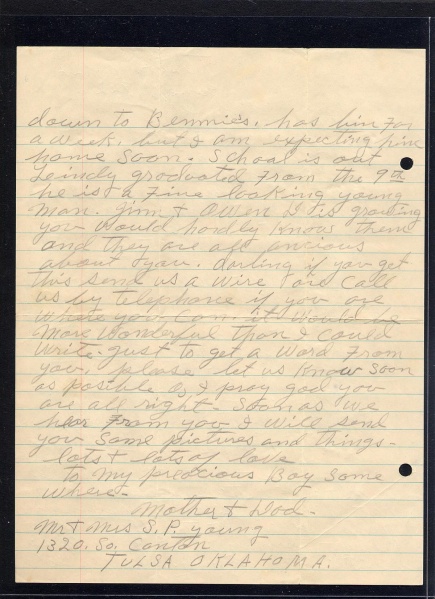 down to Bennie's. has him for
a week. but I am expecting him
home soon. School is out
Loindy groduated from the 9th
he is a fine looking young
man. Jim + Owen D is growing
you would hardly know them
and they are all ancious
about you. darling if you get
this send us a wire or call
us by telephone if you are
where you can. it would be
more wonderful than I could
write. just to get a word from
you. please let us know soon
as posible as I pray god you
are all right. Soon as we
hear from you I will send
you some pictures and things-
lots + lots of love
to my precious Boy some
where-
Mother + Dad-
Mr + Mrs S. P. young
1320. So. Canton
TULSA OKLAHOMA.